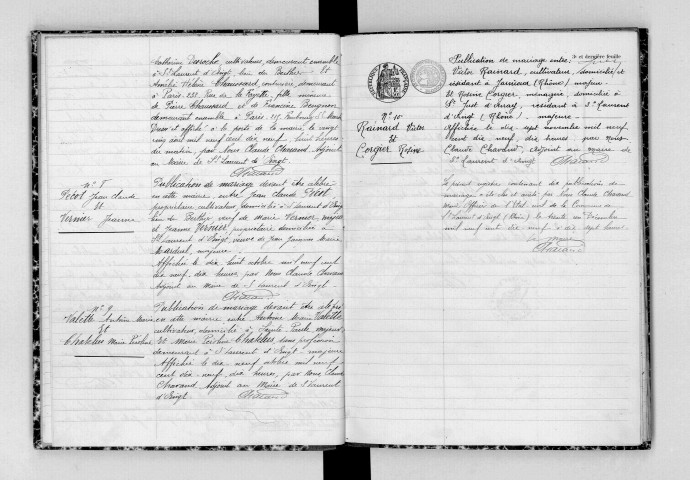 Catherine Desroche, cultivateurs, demeurant ensemble
à St Laurent d'Oingt, lieu de Et
Amélie Hélène Chaussard, couturière demeurant
à Paris, 232, Rue de La Fayette, fille mineure
de Pierre Chaussard et de Francine Bergeron
demeurant ensemble à Paris,
et affiché à la porte de la mairie, le vingt
août mil neuf cent dix neuf, heures
du matin, par Nous Claude Chavand, Adjoint
au Maire de St Laurent d'Oingt.
Chavand
Jean Claude
Et
Vernier Jeanne
Publication de mariage devant être célébré
en cette mairie, entre Jean Claude
propriétaire cultivateur, domicilié à St Laurent d'Oingt
veuf de Marie Vernier, majeur
et Jeanne Vernier, propriétaire domiciliée à
St Laurent d'Oingt, veuve de Jean Marie
majeure
Affichée le dix huit octobre mil neuf cent
dix neuf, dix heures, par Nous Claude Chavand
Adjoint au Maire de St Laurent d'Oingt
Chavand
N° 9
Valette Antoine Marie
Et
Chatelus Marie
Publication de mariage devant être célébré
en cette mairie entre Antoine Marie Valette
cultivateur, domicilié à Sainte Paule, majeur
Et Marie Chatelus sans profession
demeurant à St Laurent d'Oingt majeure
Affichée le dix neuf octobre mil neuf
cent dix neuf, dix heures, par Nous Claude
Chavand, Adjoint au Maire de St Laurent
d'Oingt
Chavand
et dernière feuille
N° 10
Rainard Victor
Et
Corgier Rosine
Publication de mariage entre:
Victor Rainard, cultivateur, domicilié et
résidant à Jarnioux (Rhône) majeur
Et Rosine Corgier, ménagère, domiciliée à
St Just d'Avray, résidant à St Laurent
d'Oingt (Rhône) majeure
Affichée le dix sept novembre mil neuf
cent dix neuf, dix heures, par Nous
Claude Chavand, adjoint au maire de
St Laurent d'Oingt
Chavand
Le présent registre contenant dix publications de
mariage a été clos et arrêté par Nous Claude Chavand
Officier de l'Etat civil de la Commune de
St Laurent d'Oingt (Rhône) le trente un Décembre
mil neuf cent dix neuf à dix sept heures
Chavand